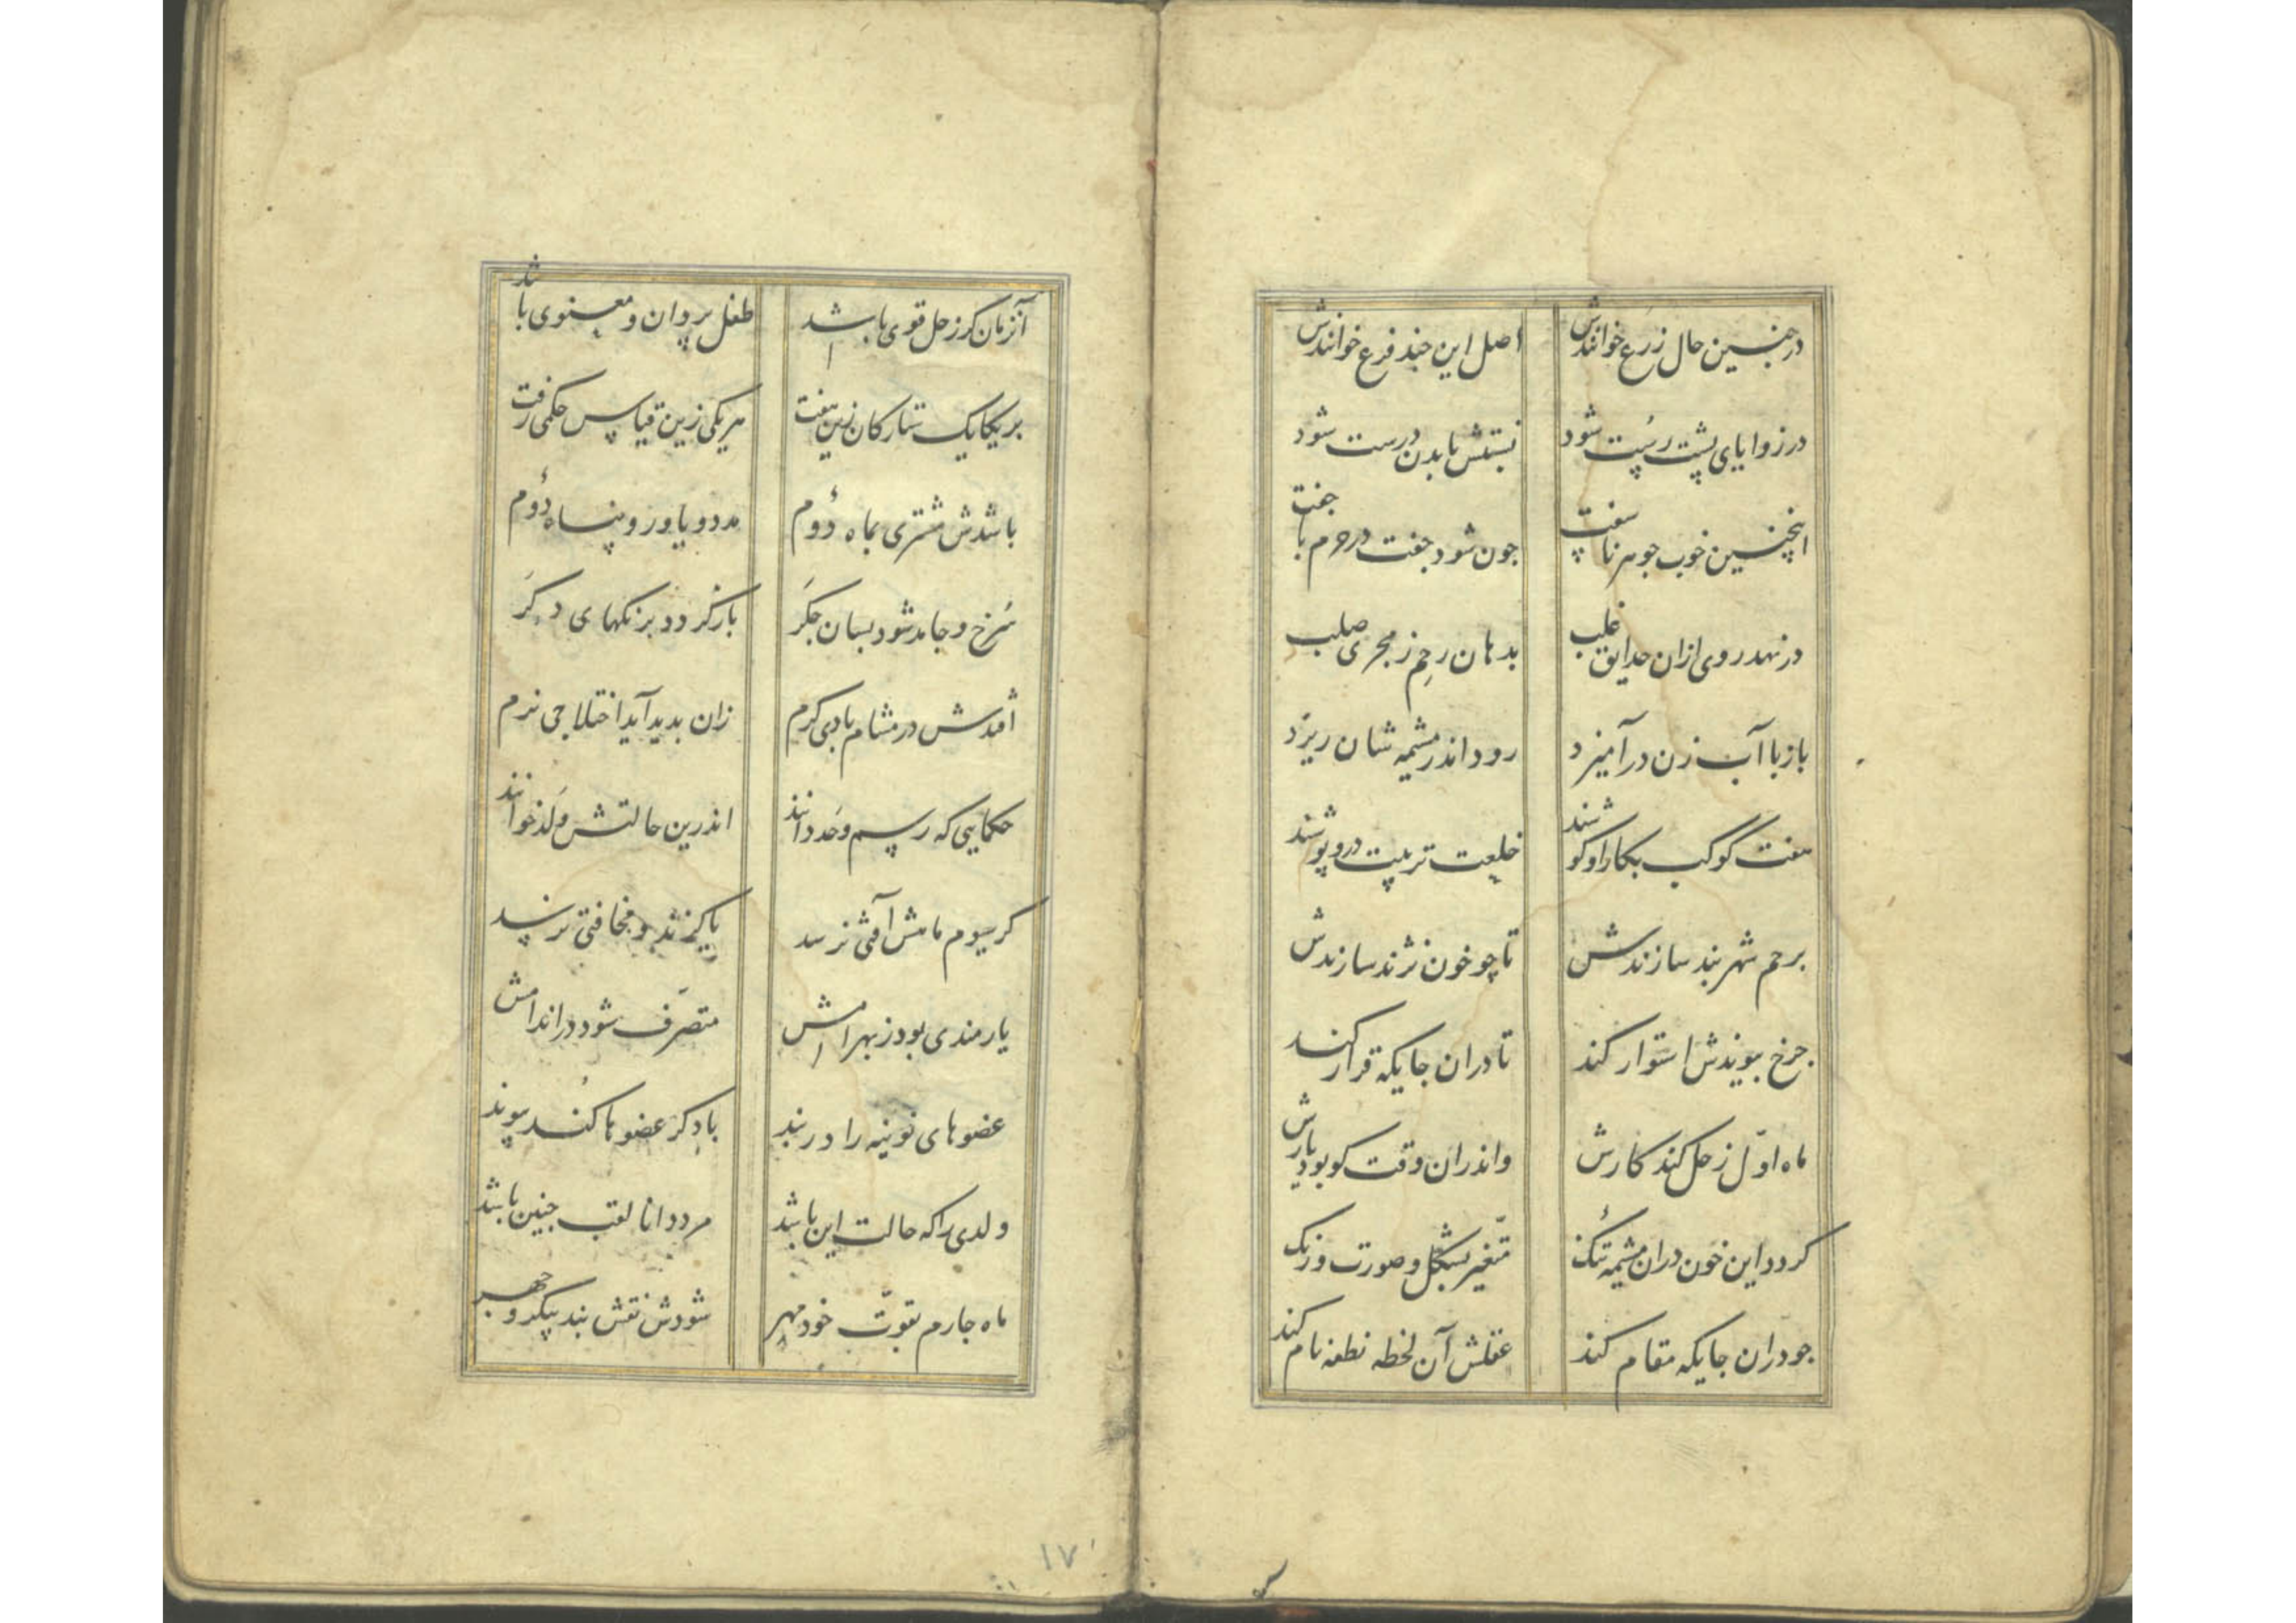 در جنین حال زرع خوانندش اصل این جند فرع خوانندش
در زوایای پشت رست شود نبستش با بدن درست شود
اینچنین خوب جوهر ناسفت جون شود جفت در حرم با جفت
در نهد روی ازان حدایق غلب بدهان رحم ز مجری صلب
باز با آب زن درآمیزد رود اندر مشیمه شان ریزد
هفت کوکب بکار او کوشند خلعت تربیت درو پوشند
برحم شهربند سازندش تا چو خون نژند سازندش
جرخ بیوندش استوار کند تا دران جایکه قرار کند
ماه اوّل زحل کند کارش واندران وقت کو بود یارش
کردد این خون دران مشیمه تنک متغیّر بشکل و صورت و رنک
جو دران جایکه مقام کند عقلش آن لحظه نطفه نام کند
آنزمان کر زحل قوی باشد طفل پردان و معنوی باشد
بر یکایک ستارکان زین هفت هر یکی زین قیاس حکمی رفت
باشدش مشتری بماه دُوم مدد و یاور و پناه دُوم
سرخ و جامد شود بسان جکر باز کردد برنکهای دکر
اُفتدش در مشام بادی کرم زان بدید آید اختلاجی نرم
حکمایی که رسم و حد دانند اندرین حالتش وَلَد خوانند
کر سیوم ماهش آفتی نرسد یا کزند و مخافتی نرسد
یارمندی بود ز بهرامش متصرّف شود در اندامش
عضوهای نوینه را در بند با دکر عضوها کُند پیوند
ولدی را که حالت این باشد مرد دانا لقب جنین باشد
ماه جارم بقوّت خود مهر شودش نقش بند پیکر و جهر
۱۷